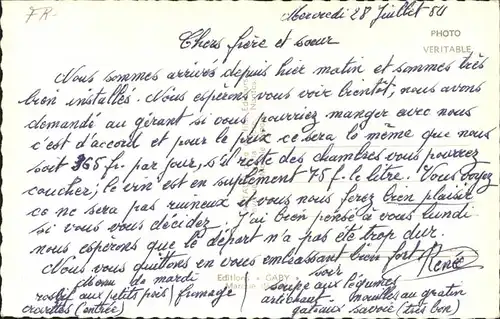 FR-
Mercredi 28 Juillet 54
PHOTO
VERITABLE
Chers frère et soeur
Nous sommes arrivés depuis hier matin et sommes très
bien installés. Nous espérons vous voir bientôt, nous avons
demandé au gérant si vous pourriez manger avec nous
c'est d'accord et pour le prix ce sera le même que nous
soit 365 fr. par jour, s'il reste des chambres vous pourrez
coucher; le vin est en suplément 75 f. le litre. Vous voyez
ce ne sera pas runeux et vous nous ferez bien plaisir
si vous vous décidez. J'ai bien pensé à vous lundi
nous espérons que le départ n'a pas été trop dur.
Nous vous quittons en vous embrassant bien fort
Renée
Menu de mardi
soir
rosbif aux petits pois / fromage
soupe aux légumes
crevettes (entrée)
artichaut. nouilles au gratin
gateaux savoie (très bon)
Edition "GABY"